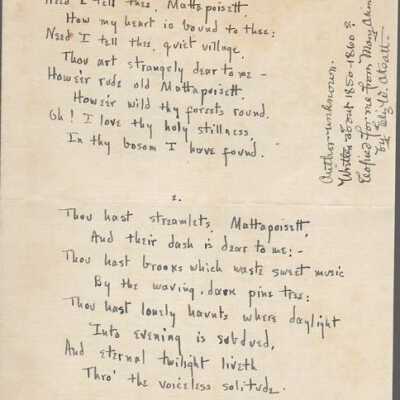 Need I tell thee, Mattapoisett
How my heart is bound to thee:
Need I tell thee, quiet village,
Thou art strangely dear to me -
Howe'er rude old Mattapoisett,
Howe'er wild thy forests round.
Oh! I love thy holy stillness,
In thy bosom I have found.
2.
Thou hast streamlets, Mattapoisett,
And their dash is dear to me: -
Thou hast brooks which waste sweet music
By the waving, dark pine tree:
Thou hast lonely haunts where daylight
Into evening is subdued,
And eternal twilight liveth
Thro' the voiceless solitude.
Author-unknown.
Written about 1850-1860?
Copied for me from Mary
by